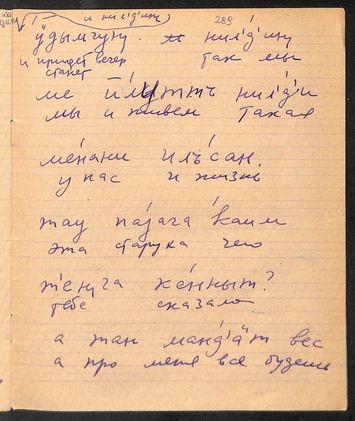 и нил́д'ин,)
289
ӱдымгуну. нил́д'иң
и придет вечер так мы
станет
ме илуттъ нил́д'и
мы и живем такая
ме́нани илъ́сан.
у нас и жизнь
тау па́јага каим
эта старуха чего
т'е́нџга ке́нныт?
тебе сказала
а тан манд'а́т вес
а про меня все будешь